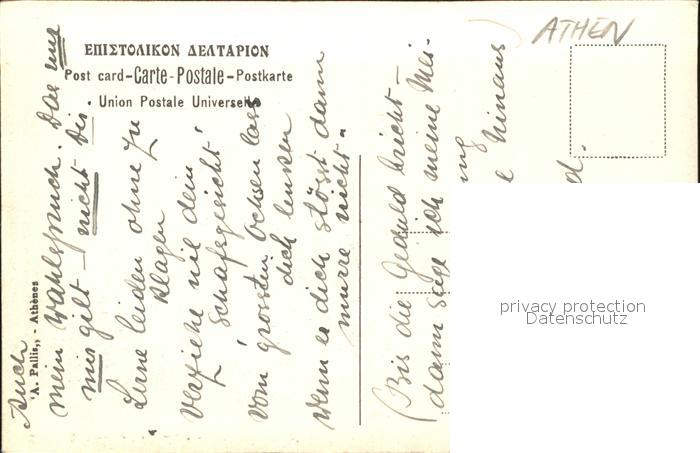 ATHEN
ΕΠΙΣΤΟΛΙΚΟΝ ΔΕΛΤΑΡΙΟΝ
Post card-Carte-Postale-Postkarte
Union Postale Universelle
'A. Pallis,, - Athènes
Auch
mein Wahlspruch. Das
mir gilt - nicht Dir
Lerne leiden ohne zu
klagen
verziehe nie dein
Schafsgesicht!
Vom grossen Ochsen lass
dich lenken
Wenn er dich stösst dann
murre nicht.
(Bis die Geduld bricht -
dann sage ich meine Mei-
ng
hinaus)
d.
privacy protection
Datenschutz